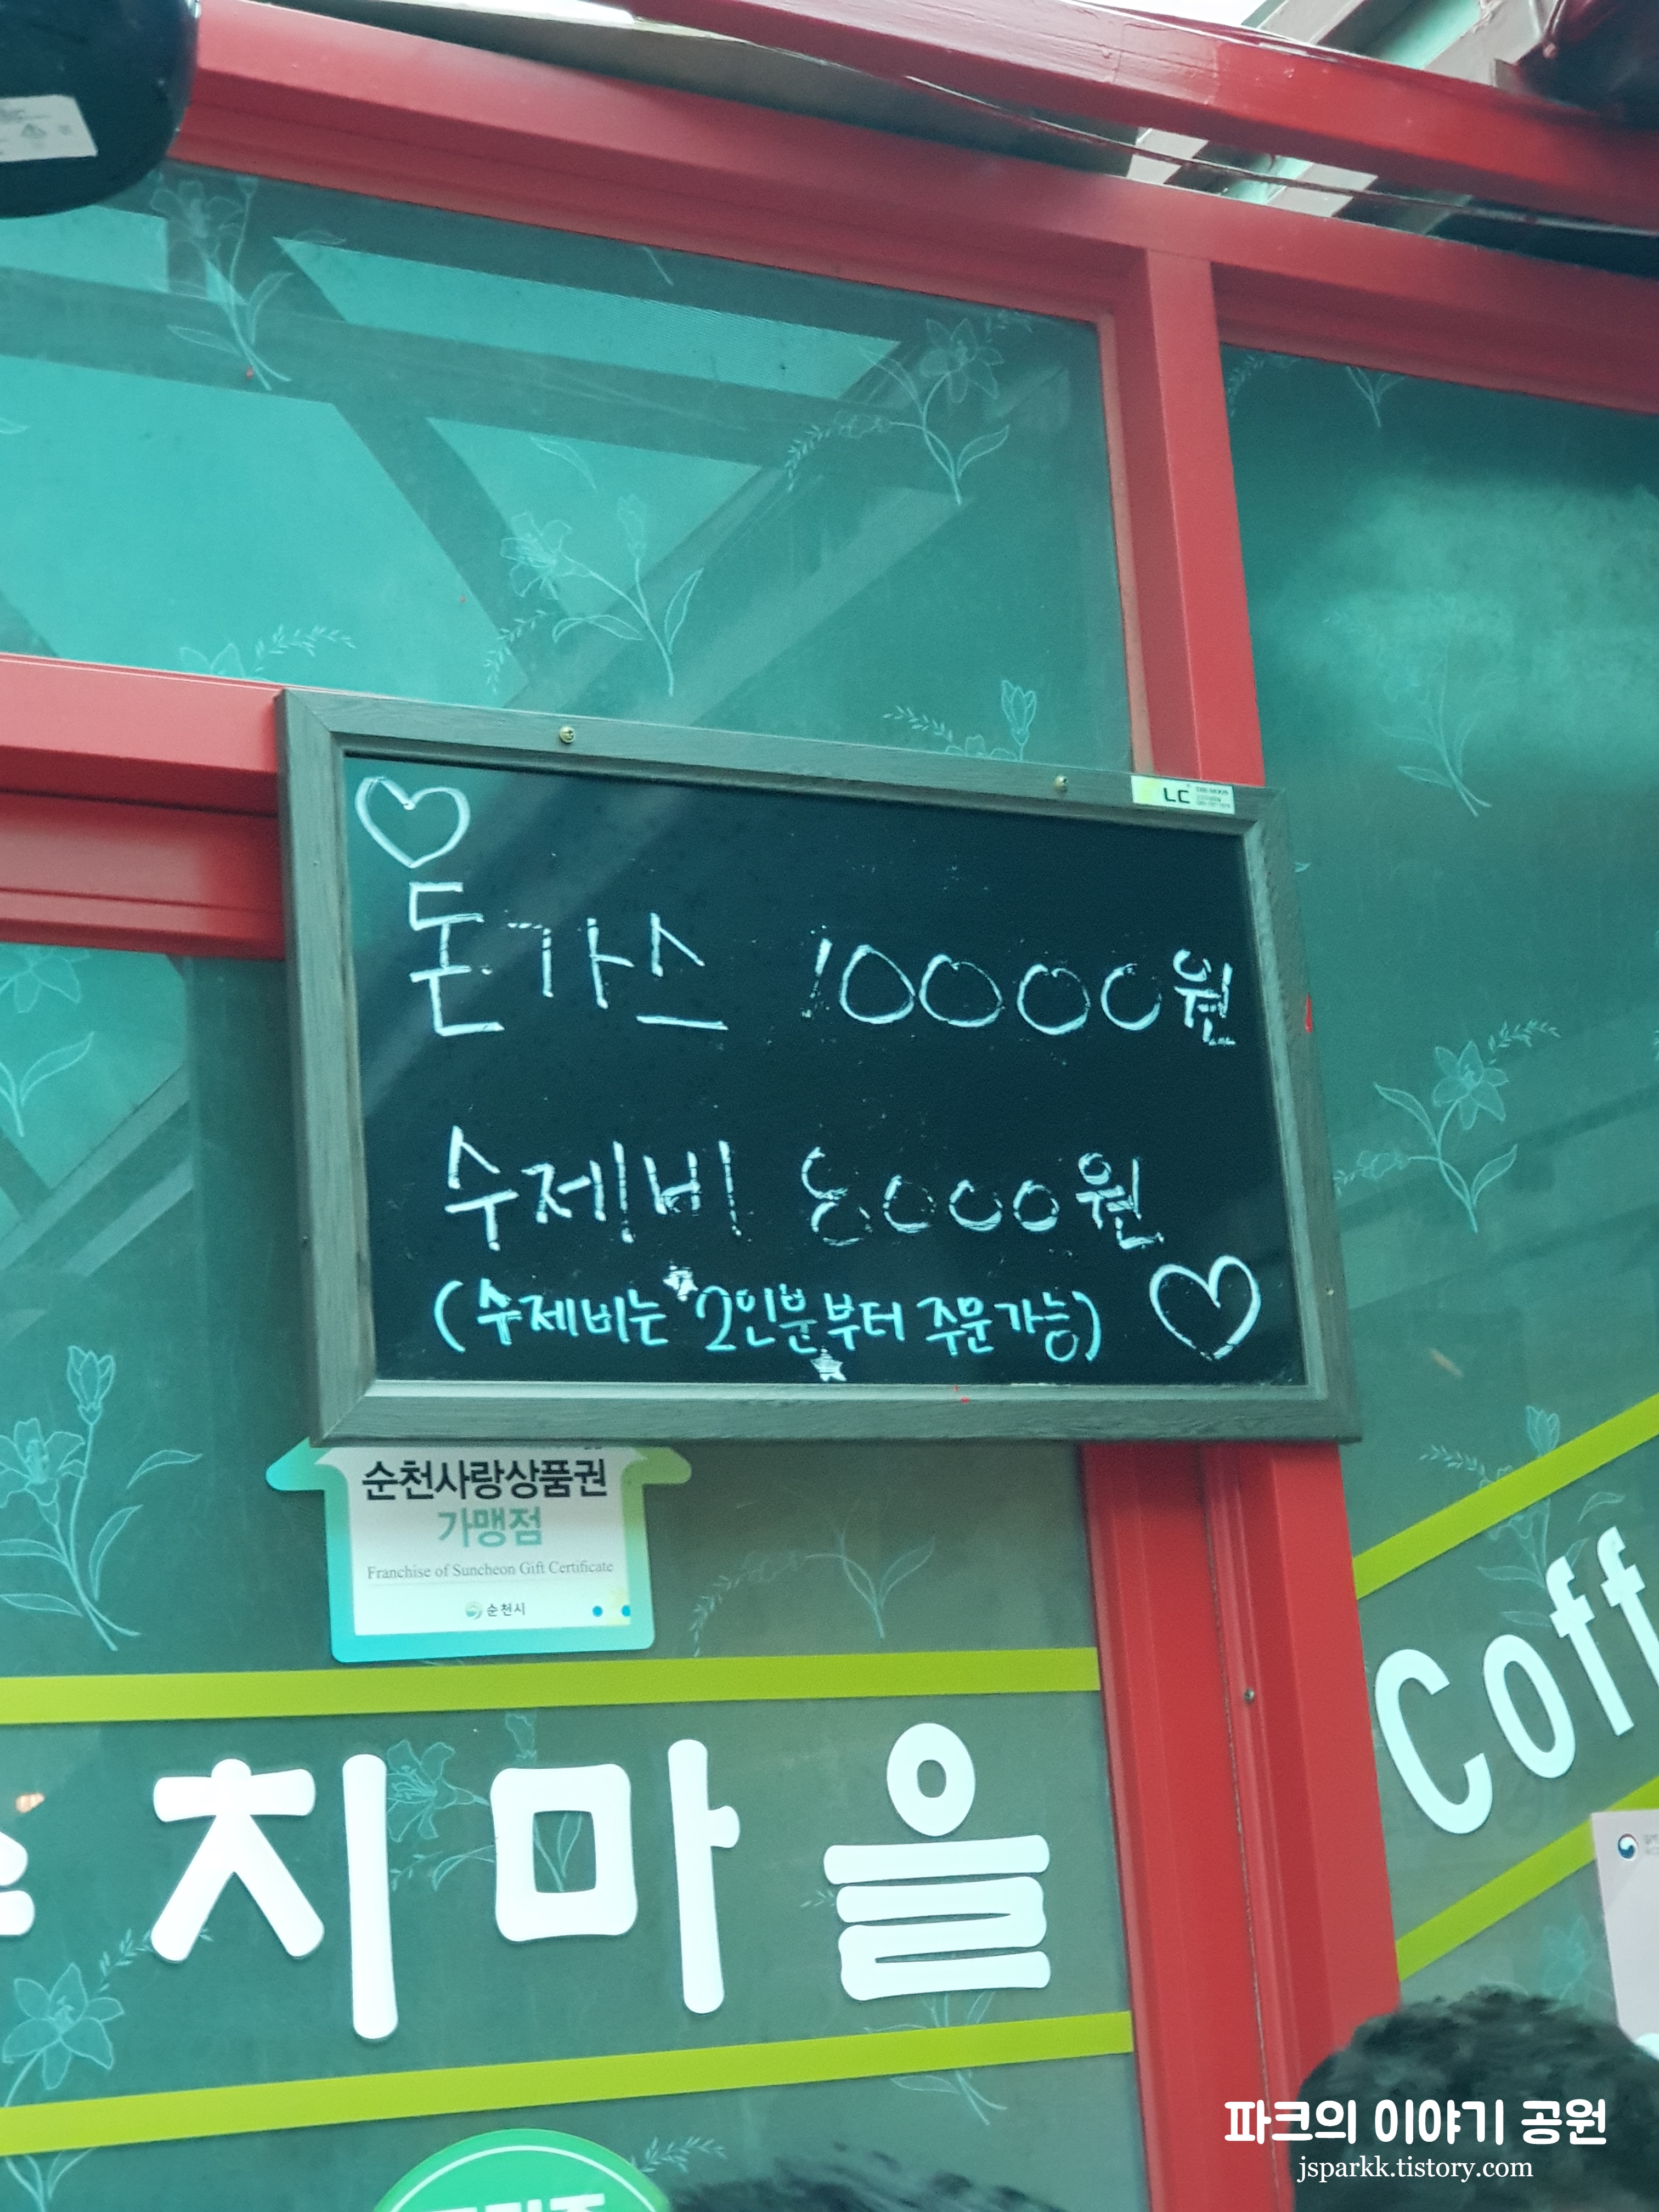 LC
돈가스 10000원
수제비 8000원
(수제비는 2인분부터 주문가능)
순천사랑상품권
가맹점
Franchise of Suncheon Gift Certificate
순천시
치마을
Coff
파크의 이야기 공원
jsparkk.tistory.com